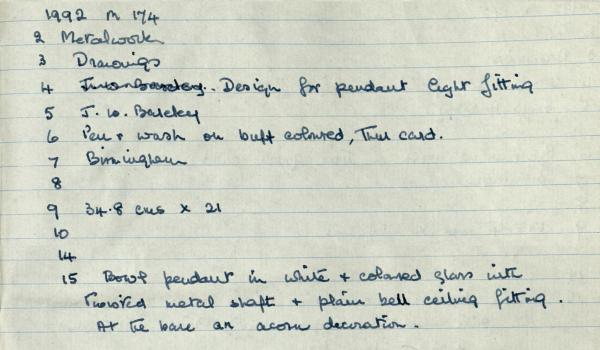 1992 M 174
2 Metalwork
3 Drawings
4 Design for pendant light fitting
5 J. W. Barclay
6 Pen + wash on buff coloured, Thin card.
7 Birmingham
8
9 34.8 cms x 21
10
14
15 Bowl pendant in white + coloured glass with
twisted metal shaft + plain bell ceiling fitting.
At the base an acorn decoration.